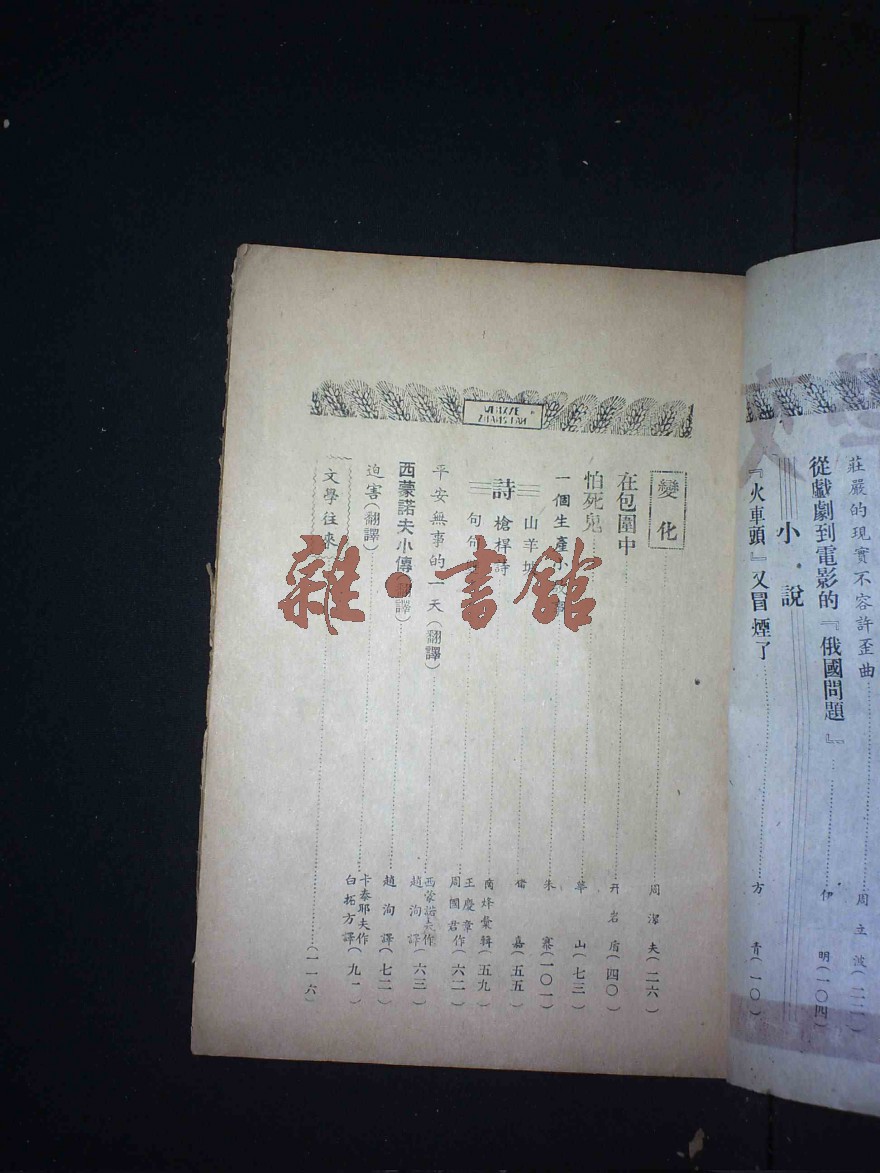 莊嚴的現實不容許歪曲 周立波(二二)
從戲劇到電影的『俄國問題』 伊明(一〇四)
小說
『火車頭』又冒煙了 方青(一〇)
WENXYE
ZHANSIAN
變化 周潔夫(二六)
在包圍中 丹岩盾(四〇)
怕死鬼 華山(七三)
一個生產小故事 朱寨(一〇一)
詩
山羊坡 嘉(五五)
槍桿詩 商烽彙輯(五九)
句句 王慶章 周國君作(六二)
平安無事的一天(翻譯) 西蒙諾夫作 趙洵譯(六三)
西蒙諾夫小傳(翻譯) 趙洵譯(七二)
迫害(翻譯) 卡泰耶夫作 白拓方譯(九一)
文學往來 (一一六)
雜·書館